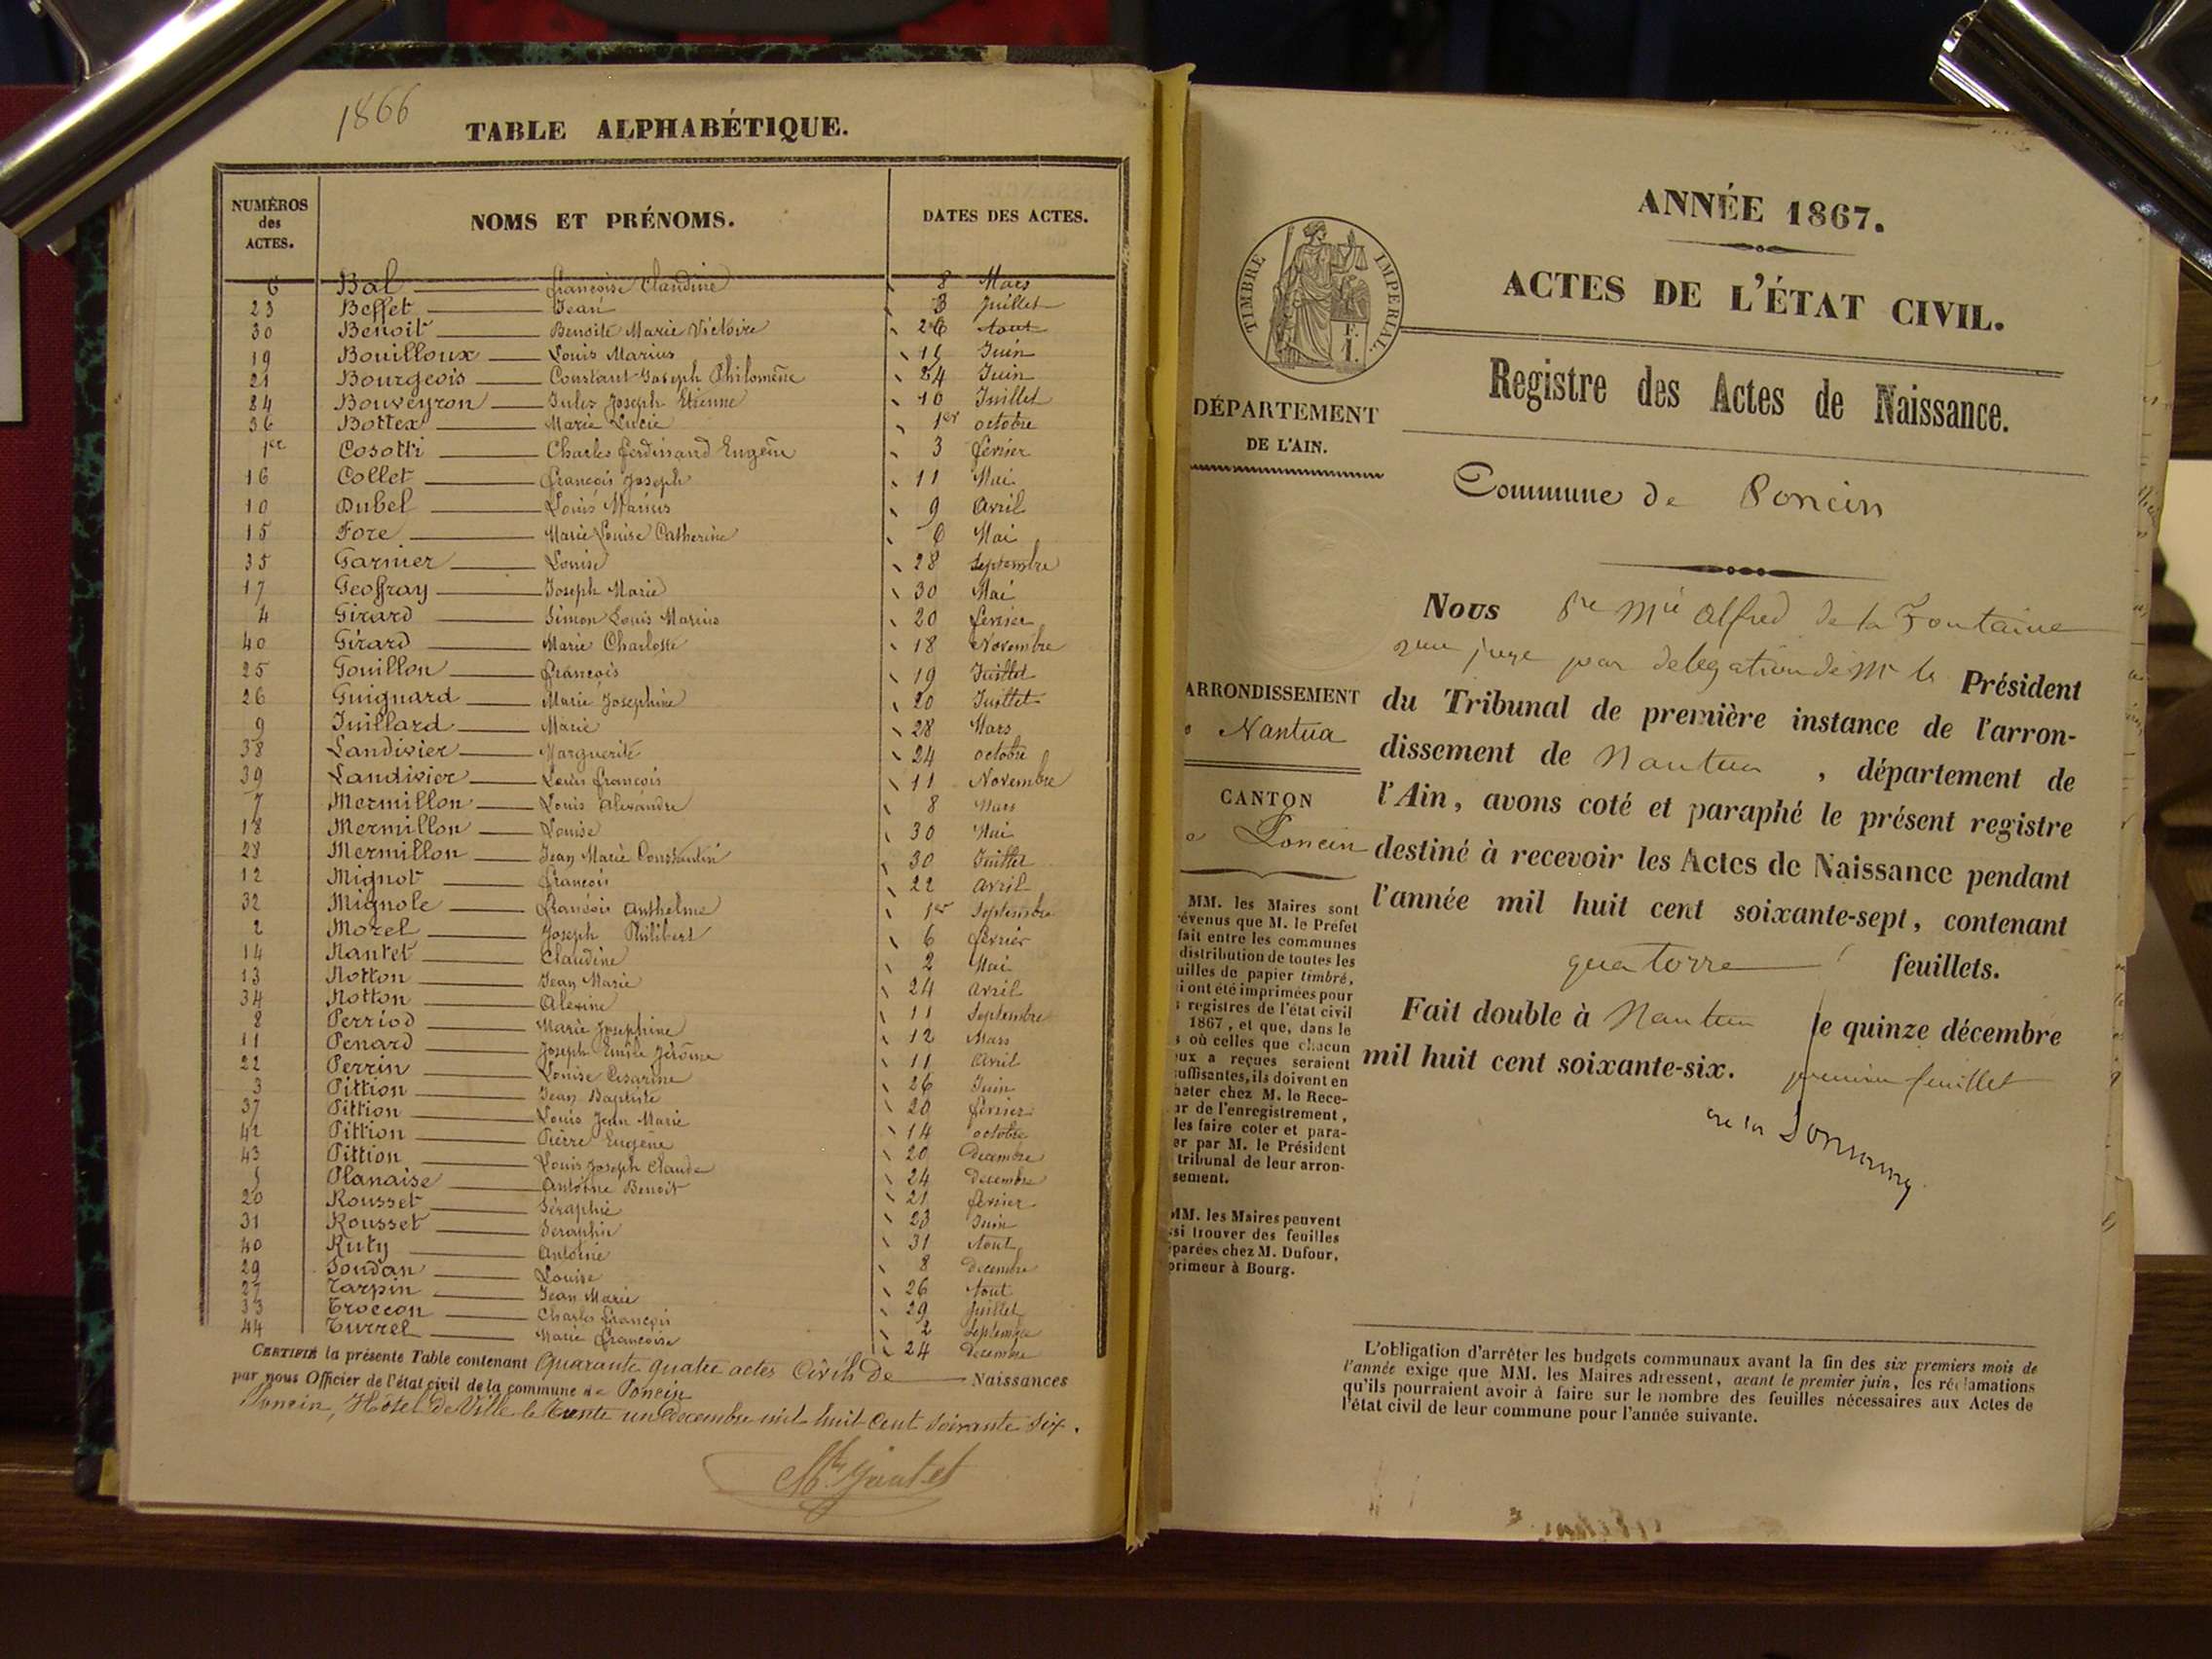 1866
TABLE ALPHABÉTIQUE.
NUMÉROS des ACTES. NOMS ET PRÉNOMS. DATES DES ACTES.
6 Bal Françoise Claudine 8 Mars
23 Beffet Jean 3 Juillet
30 Benoit Benoite Marie Victoire 26 Aout
19 Bouilloux Louis Marius 11 Juin
21 Bourgeois Constant Joseph Philomène 24 Juin
24 Bouveyron Jules Joseph Etienne 10 Juillet
36 Bottex Marie Lucie 1er octobre
1er Cosotti Charles Ferdinand Eugène 3 février
16 Collet François Joseph 11 Mai
10 Dubel Louis Marius 9 Avril
15 Fore Marie Louise Catherine 6 Mai
35 Garnier Louise 28 Septembre
17 Geoffray Joseph Marie 30 Mai
4 Girard Simon Louis Marius 20 février
40 Girard Marie Charlotte 18 Novembre
25 Gouillon François 19 Juillet
26 Guignard Marie Josephine 20 Juillet
9 Juillard Marie 28 Mars
38 Landivier Marguerite 24 octobre
39 Landivier Louis François 11 Novembre
7 Mermillon Louis Alexandre 8 Mars
18 Mermillon Louise 30 Mai
28 Mermillon Jean Marie Constantin 30 Juillet
12 Mignot François 22 Avril
32 Mignole François Anthelme 1er Septembre
2 Morel Joseph Philibert 6 février
14 Nantet Claudine 2 Mai
13 Notton Jean Marie 24 Avril
34 Notton Alexine 11 Septembre
8 Perriod Marie Josephine 12 Mars
11 Penard Joseph Emile Jérôme 11 Avril
22 Perrin Louise Césarine 26 Juin
3 Pittion Jean Baptiste 20 février
37 Pittion Louis Jean Marie 14 octobre
42 Pittion Pierre Eugène 20 Décembre
43 Pittion Louis Joseph Claude 24 Décembre
5 Planaise Antoine Benoit 21 février
20 Rousset Séraphie 23 Juin
31 Rousset Seraphin 31 Aout
40 Ruty Antoine 8 Décembre
29 Soudan Louise 26 Aout
27 Tarpin Jean Marie 29 Juillet
33 Troccon Charles François 2 Septembre
44 Turrel Marie Françoise 24 Décembre
CERTIFIÉ la présente Table contenant Quarante quatre actes Civils de Naissances
par nous Officier de l'état civil de la commune de Poncin
Poncin, Hôtel De Ville le Trente un Décembre mil huit Cent Soixante Six.
ANNÉE 1867.
ACTES DE L'ÉTAT CIVIL.
TIMBRE IMPERIAL.
Registre des Actes de Naissance.
DÉPARTEMENT
DE L'AIN.
Commune de Poncin
ARRONDISSEMENT
Nantua
CANTON
Poncin
MM. les Maires sont
évenus que M. le Prefet
fait entre les communes
distribution de toutes les
uilles de papier timbré,
i ont été imprimées pour
s registres de l'état civil
1867, et que, dans le
s où celles que chacun
eux a reçues seraient
suffisantes, ils doivent en
heter chez M. le Rece-
ur de l'enregistrement,
les faire coter et para-
er par M. le Président
tribunal de leur arron-
sement.
MM. les Maires peuvent
ssi trouver des feuilles
parées chez M. Dufour,
primeur à Bourg.
Nous Alfred de la Fontaine
juge par delegation de Mr le Président
du Tribunal de première instance de l'arron-
dissement de Nantua, département de
l'Ain, avons coté et paraphé le présent registre
destiné à recevoir les Actes de Naissance pendant
l'année mil huit cent soixante-sept, contenant
quatorze feuillets.
Fait double à Nantua le quinze décembre
mil huit cent soixante-six.
premier feuillet
L'obligation d'arrêter les budgets communaux avant la fin des six premiers mois de
l'année exige que MM. les Maires adressent, avant le premier juin, les réclamations
qu'ils pourraient avoir à faire sur le nombre des feuilles nécessaires aux Actes de
l'état civil de leur commune pour l'année suivante.